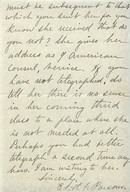 must be subsequent to that
which you sent her for you
know she received that do
you not? she gives her
address as % American
Consul, Service. If you
have not telegraphed, do
tell her there is no sense
in her coming third
class to a place where she
is not needed at all.
Perhaps you had better
telegraph a second time any
how. I am writing to her.
Sincerely,
Parsons